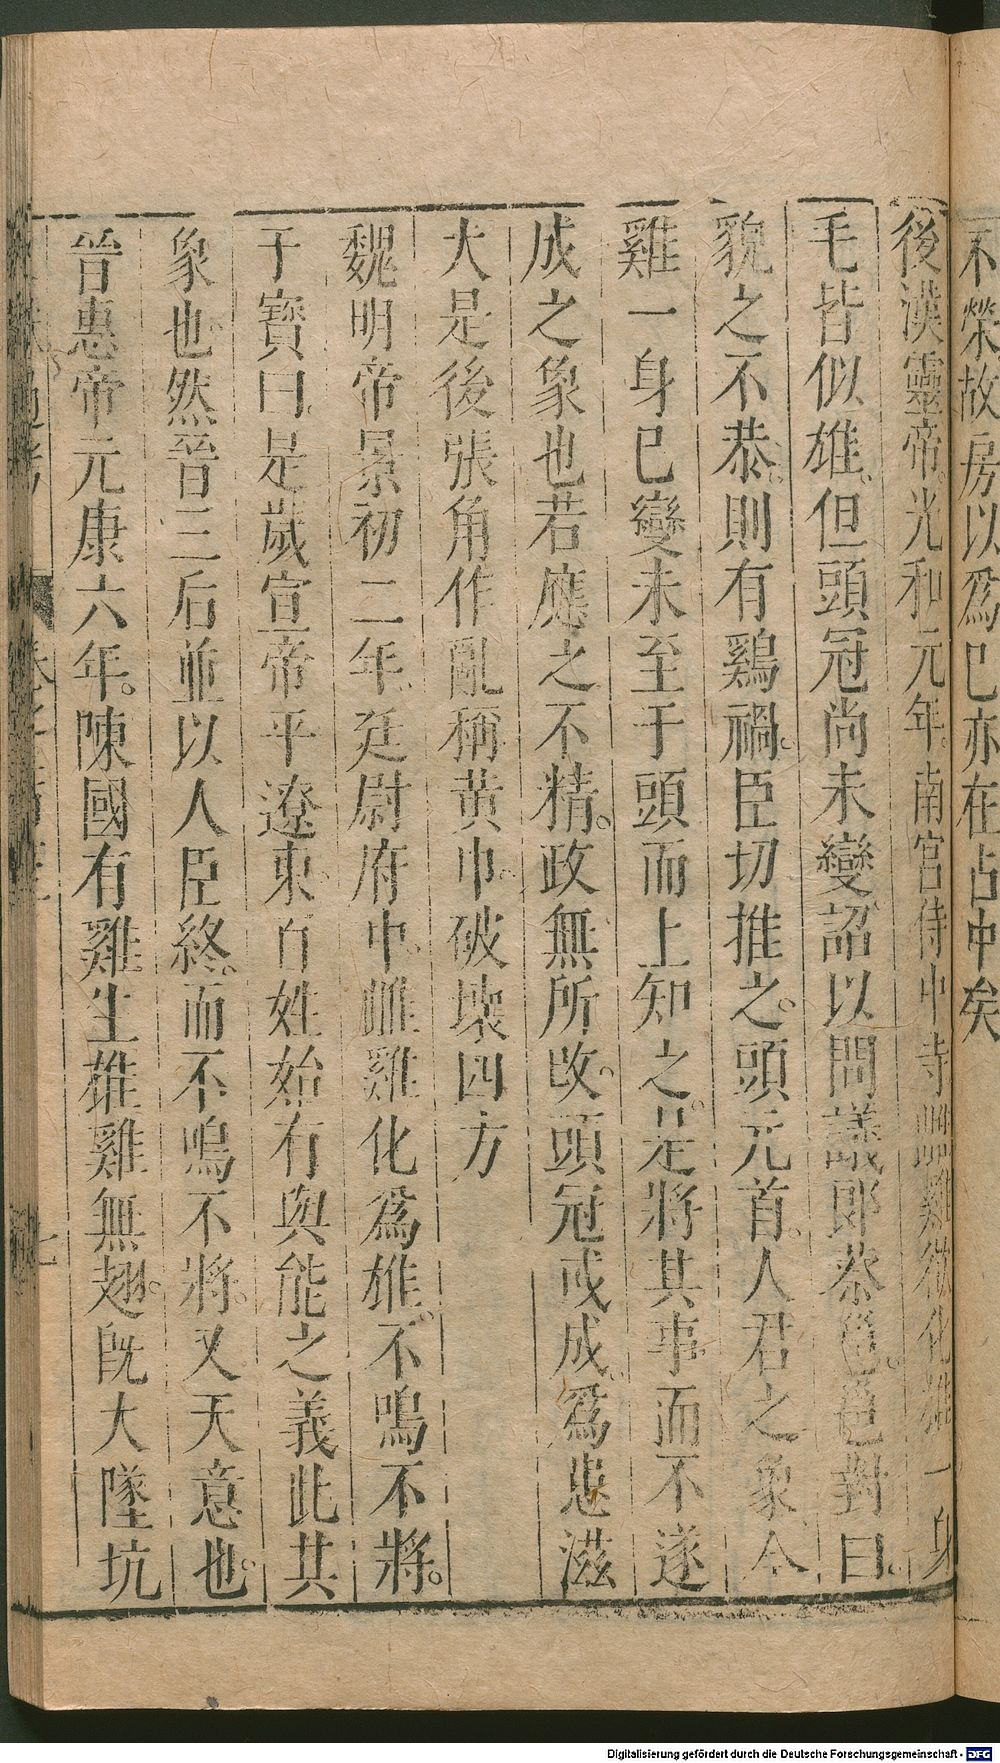 不榮故房以爲己亦在占中矣
後漢靈帝光和元年南宮侍中寺雌雞欲化雄一身
毛皆似雄但頭冠尚未變詔以問議郎蔡邕邕對曰
貌之不恭則有鷄禍臣切推之頭元首人君之象今
雞一身已變未至于頭而上知之是將其事而不遂
成之象也若應之不精政無所改頭冠或成爲患滋
大是後張角作亂稱黃巾破壞四方
魏明帝景初二年廷尉府中雌雞化爲雄不鳴不將
于寶曰是歲宣帝平遼東百姓始有與能之義此其
象也然晉三后並以人臣終而不鳴不將又天意也
晉惠帝元康六年陳國有雞生雄雞無翅既大墜坑
七
Digitalisierung gefördert durch die Deutsche Forschungsgemeinschaft - DFG